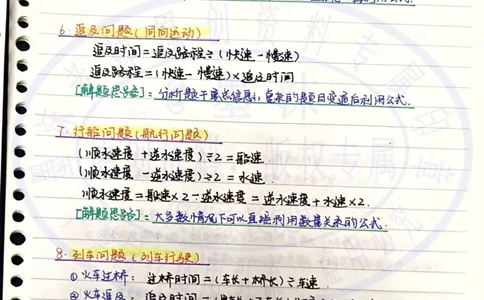 利用公式.
6. 追及问题(同向运动)
追及时间=追及路程÷(快速-慢速)
追及路程=(快速-慢速)×追及时间
[解题思路]:分析题干信息,利用公式.
7. 行船问题(航行问题)
(顺水速度+逆水速度)÷2=船速
(顺水速度-逆水速度)÷2=水速.
顺水速度=船速×2-逆水速度=逆水速度+水速×2.
[解题思路]:大多数情况下可以直接利用数量关系的公式.
8. 列车问题(列车行驶)
①火车过桥:过桥时间=(车长+桥长)÷车速
②火车追及:追及时间=